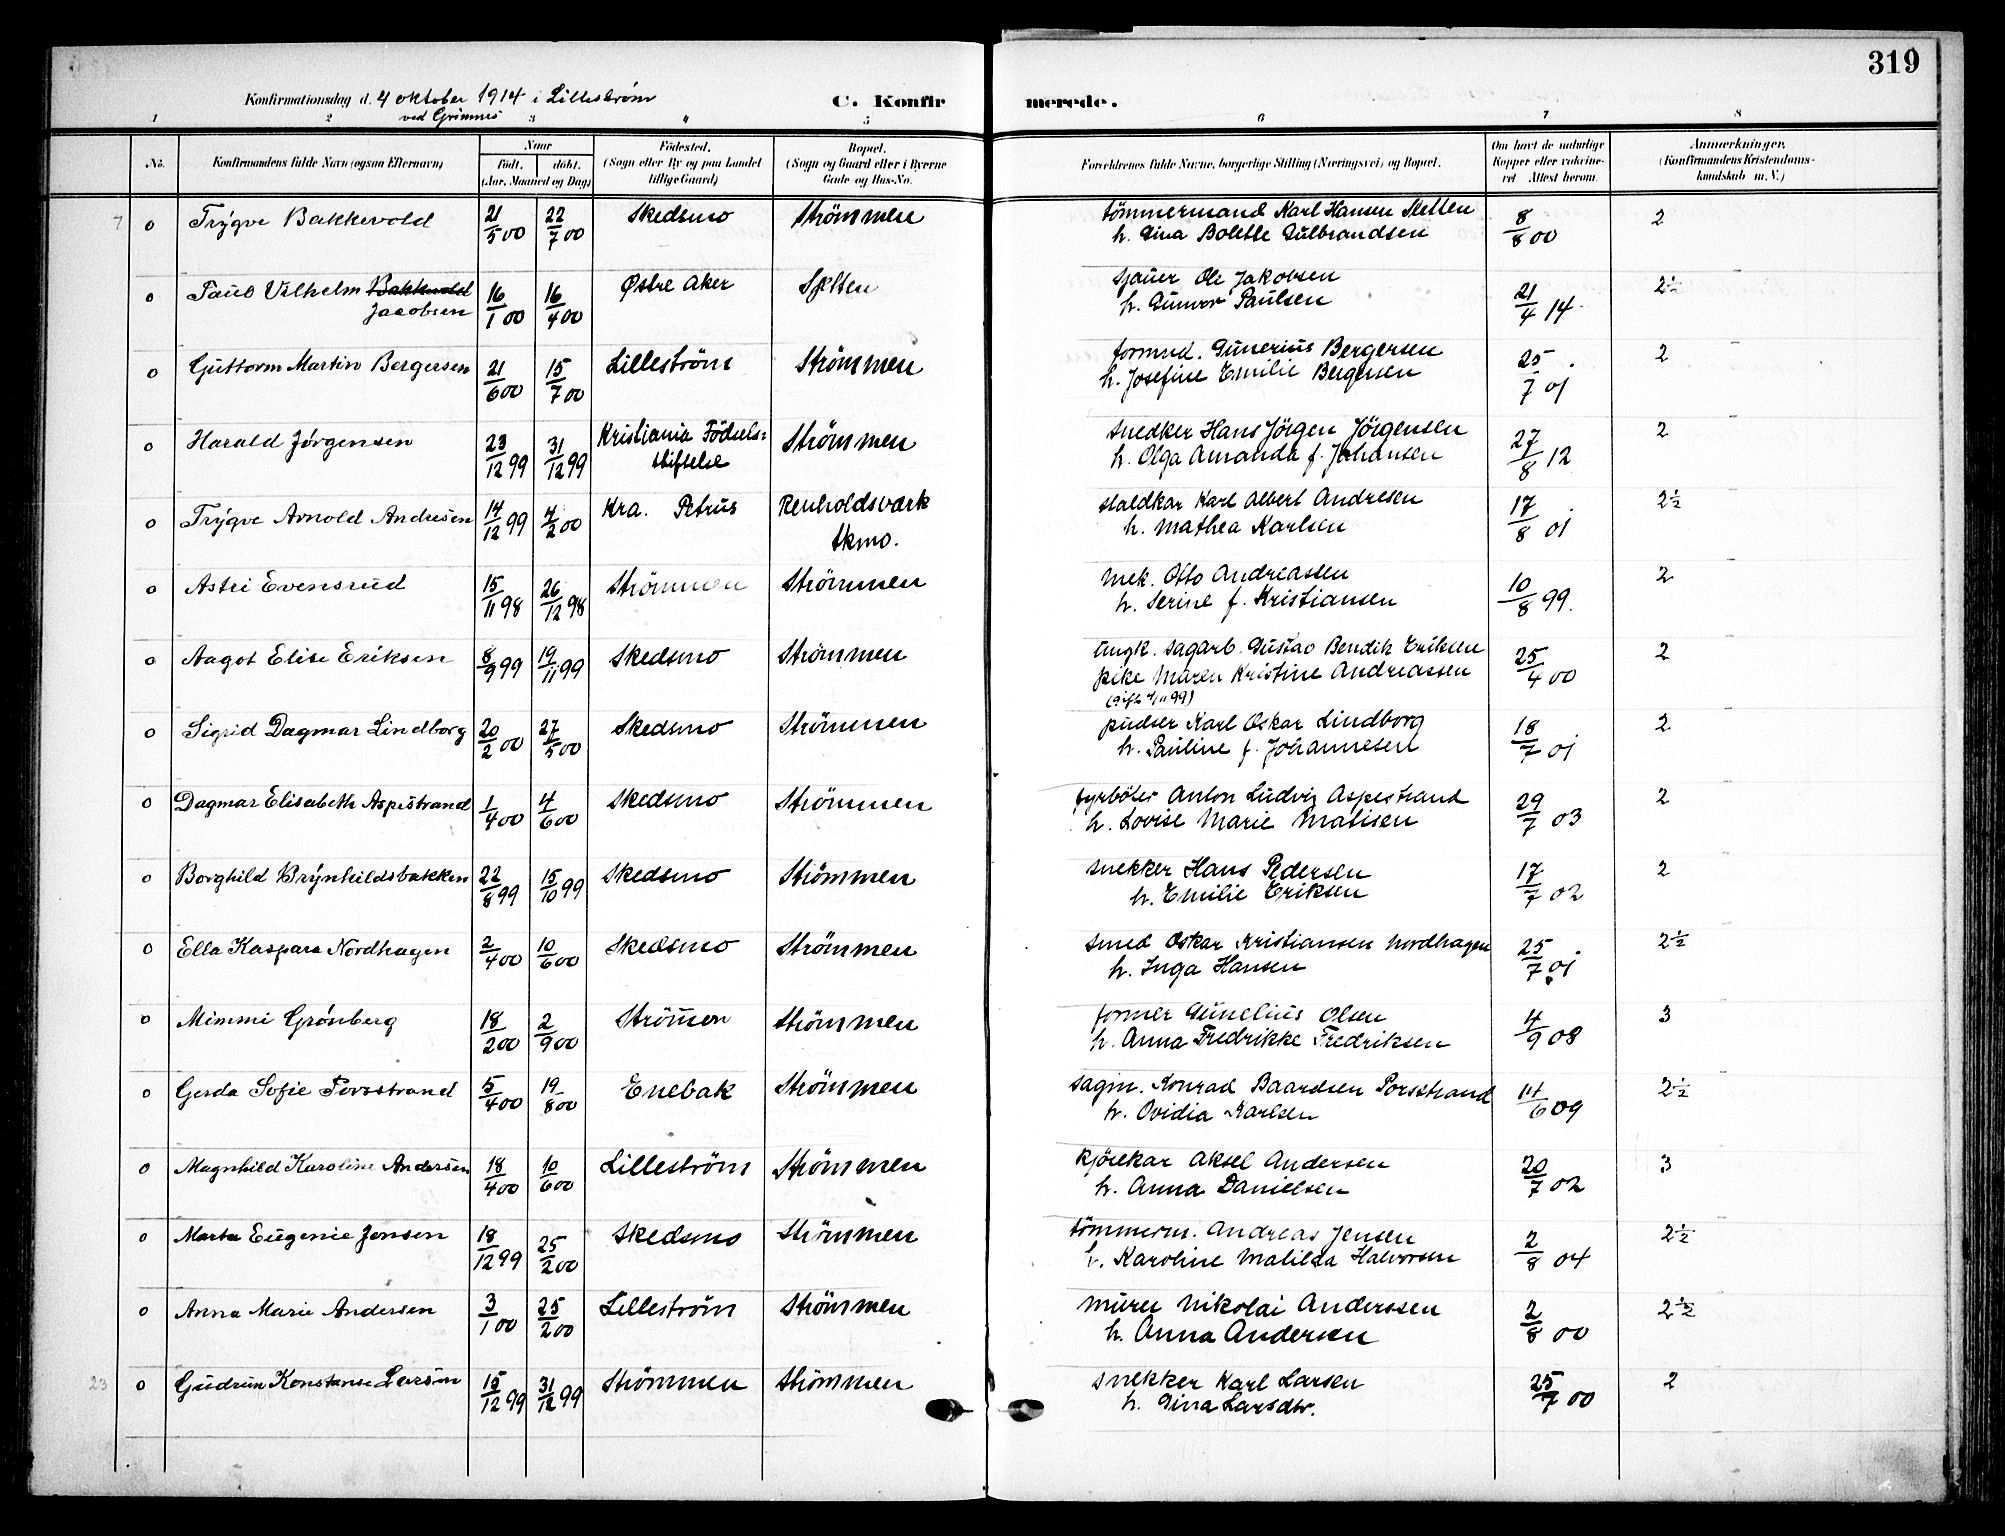 319
Konfirmationsdag d. 4 oktober 1914 i Lilleström
ved Grimnes
C. Konfirmerede.
1 2 3 4 5 6 7 8
No. | Konfirmandens fulde Navn (ogsaa Efternavn) | Naar født. døbt. (Aar, Maaned og Dag) | Fødested. (Sogn eller By og paa Landet tillige Gaard) | Bopæl. (Sogn og Gaard eller i Byerne Gade og Hus-No. | Forældrenes fulde Navne, borgerlige Stilling (Næringsvei) og Bopæl. | Om havt de naturlige Kopper eller vakcineret Attest herom. | Anmærkninger, (Konfirmandens Kristendomskundskab m. V.)
7 o Trygve Bakkevold 21/5 00 22/7 00 Skedsmo Strömmen tömmermand Karl Hansen 8/8 00 2
h. Gina Bolette Gulbrandsen
o Paul Vilhelm Bakkevold 16/1 00 16/4 00 Østre Aker sjauer Ole Jakobsen 21/4 14 2½
Jacobsen h. Gunvor Paulsen
o Guttorm Martin Bergersen 21/6 00 15/7 00 Lilleström Strömmen formed. Gunerius Bergersen 25/7 01 2
h. Josefine Emilie Bergersen
o Harald Jørgensen 23/12 99 31/12 99 Kristiania Födsels= Strömmen snedker Hans Jörgen Jörgensen 27/8 12 2
stiftelse h. Olga Amanda f. Johansen
o Trygve Arnold Andresen 14/12 99 4/2 00 Kra. Petrus Renholdsværk staldkar Karl Albert Andresen 17/8 01 2½
Skmo. h. Mathea Karlsen
o Astri Evensrud 15/11 98 26/12 98 Strömmen Strömmen mek. Otto Andreassen 10/8 99. 2
h. Serine f. Kristiansen
o Aagot Elise Eriksen 8/9 99 19/11 99 Skedsmo Strömmen ungk. sagarb. Gustav Bendik Eriksen 25/4 00 2
pike Maren Kristine Andreassen
o Sigrid Dagmar Lindborg 20/2 00 27/5 00 Skedsmo Strömmen pudser Karl Oskar Lindborg 18/7 01 2
h. Pauline f. Johannesen
o Dagmar Elisabeth Aspestrand 1/4 00 4/6 00 Skedsmo Strömmen fyrböter Anton Ludvig Aspestrand 29/7 03 2
h. Lovise Marie Matisen
o Borghild Brynhildsbakken 22/8 99 15/10 99 Skedsmo Strömmen snekker Hans Pedersen 17/7 02 2
h. Emilie Eriksen
o Ella Kaspara Nordhagen 2/4 00 10/6 00 Skedsmo Strömmen smed Oskar Kristiansen Nordhagen 25/7 01 2½
h. Inga Hansen
o Mimmi Grönberg 18/2 00 2/9 00 Strömen Strömmen former Gunelius Olsen 4/9 08 3
h. Anna Fredrikke Fredriksen
o Gerda Sofie Porsstrand 5/4 00 19/8 00 Enebak Strömmen sagm. Konrad Baardsen Porsstrand 11/6 09 2½
h. Ovidia Karlsen
o Magnhild Karoline Andersen 18/4 00 10/6 00 Lilleström Strömmen kjörekar Aksel Andersen 20/7 02 3
h. Anna Danielsen
o Marta Eugenie Jensen 18/12 99 25/2 00 Skedsmo Strömmen tömmerm. Andreas Jensen 2/8 04 2½
h. Karoline Matilda Halvorsen
o Anna Marie Andersen 3/1 00 25/2 00 Lilleström Strömmen murer Nikolai Anderssen 2/8 00 2½
h. Anna Andersen
23 o Gudrun Konstanse Larsen 15/12 99 31/12 99 Strömmen Strömmen snekker Karl Larsen 25/7 00 2
h. Gina Larsdtr.